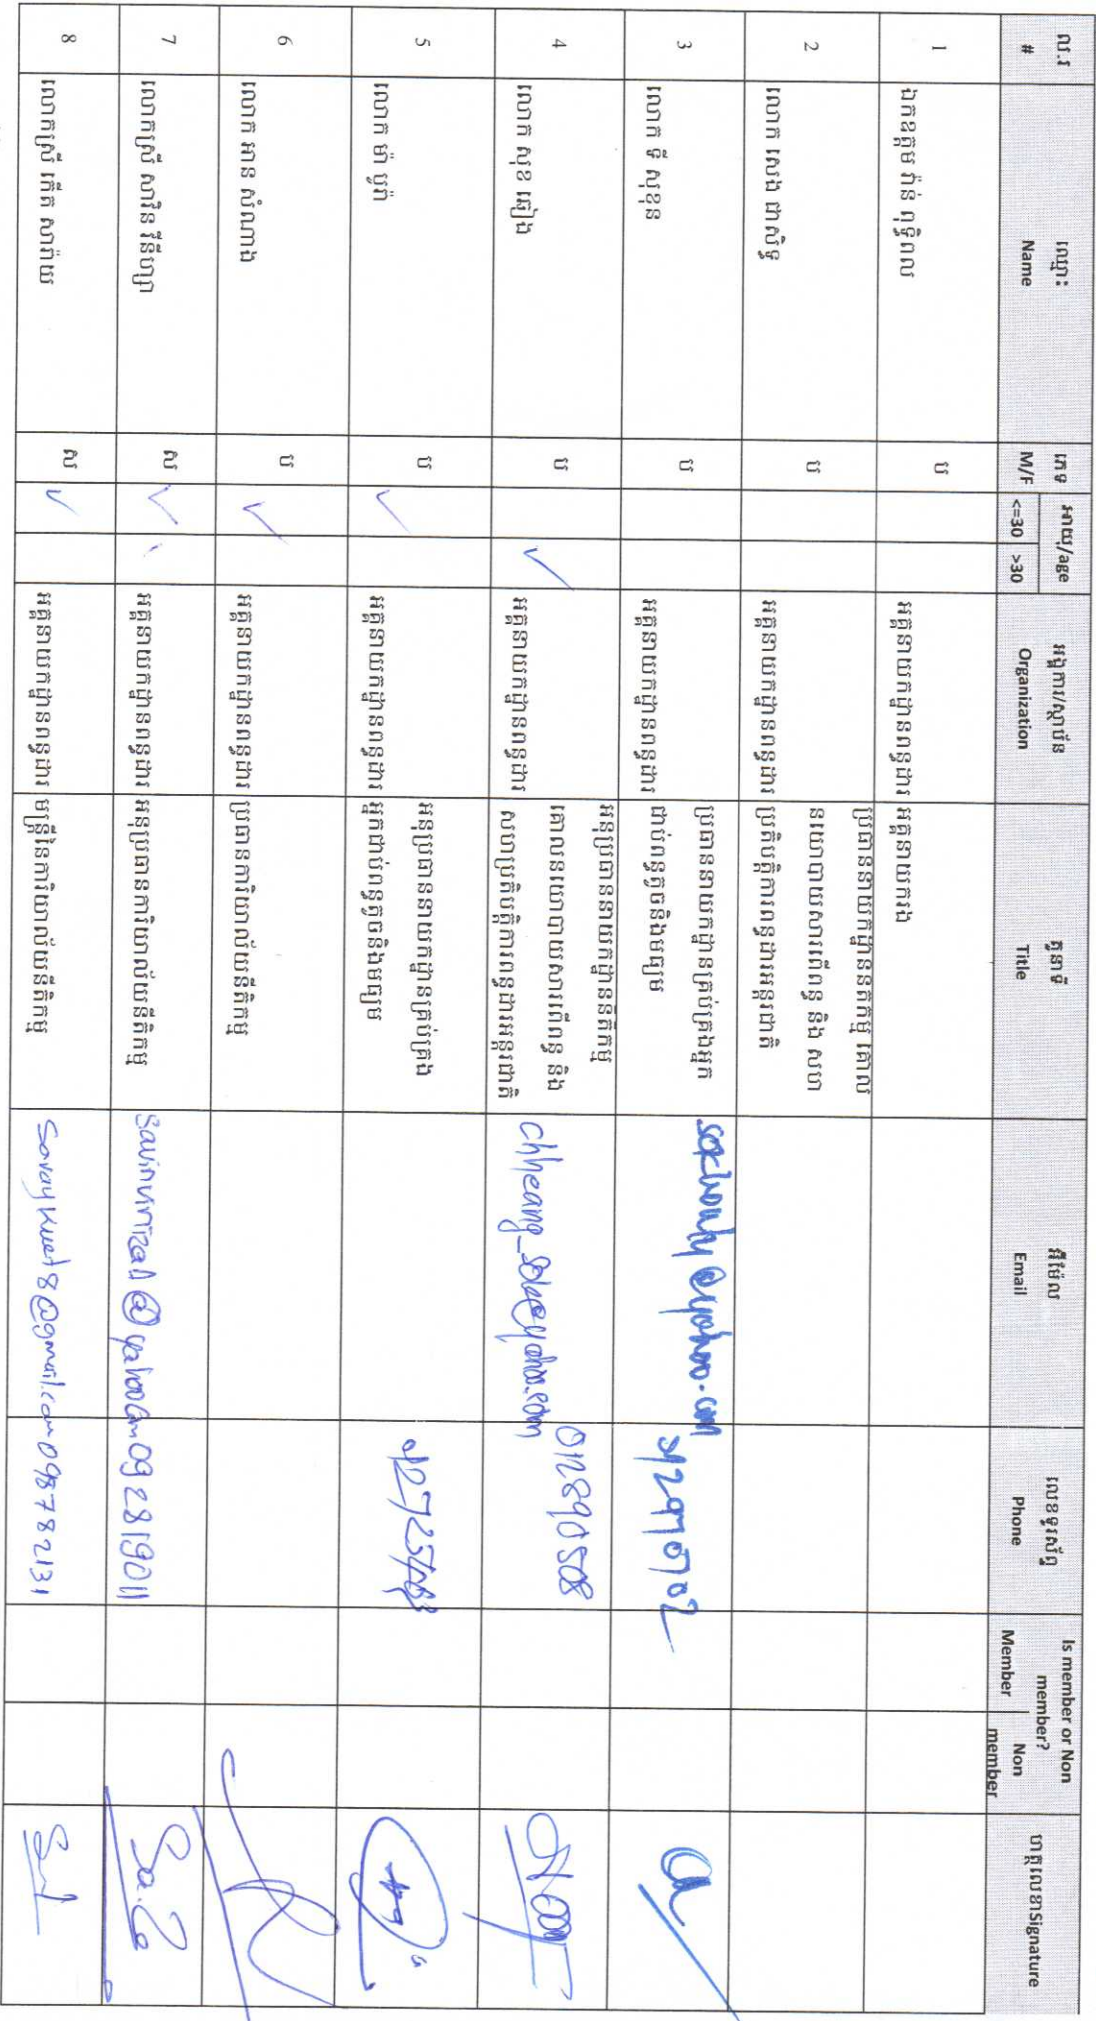 ល.រ
#
ឈ្មោះ
Name
ភេទ
M/F
អាយុ/age
<=30
>30
អង្គការ/ស្ថាប័ន
Organization
តួនាទី
Title
អ៊ីម៉ែល
Email
លេខទូរស័ព្ទ
Phone
Is member or Non
member?
Member
Non
member
ហត្ថលេខាSignature
1
ឯកឧត្តម រ៉ាន់ ពុទ្ធិពល
ប
អគ្គនាយកដ្ឋានពន្ធដារ
អគ្គនាយករង
2
លោក សេង ជាសិទ្ធ
ប
អគ្គនាយកដ្ឋានពន្ធដារ
ប្រធាននាយកដ្ឋាននីតិកម្ម គោល
នយោបាយសារពើពន្ធ និង សហ
ប្រតិបត្តិការពន្ធដារអន្តរជាតិ
3
លោក ទី សុខុន
ប
អគ្គនាយកដ្ឋានពន្ធដារ
ប្រធាននាយកដ្ឋានគ្រប់គ្រងអ្នក
ជាប់ពន្ធតូចនិងមធ្យម
4
លោក សុខ ឆៀង
ប
✓
អគ្គនាយកដ្ឋានពន្ធដារ
អនុប្រធាននាយកដ្ឋាននីតិកម្ម
គោលនយោបាយសារពើពន្ធ និង
សហប្រតិបត្តិការពន្ធដារអន្តរជាតិ
chheang_sok@yahoo.com
012890508
5
លោក ម៉ា បូរ៉ា
ប
✓
អគ្គនាយកដ្ឋានពន្ធដារ
អនុប្រធាននាយកដ្ឋានគ្រប់គ្រង
អ្នកជាប់ពន្ធតូចនិងមធ្យម
6
លោក អាន សំណាង
ប
✓
អគ្គនាយកដ្ឋានពន្ធដារ
ប្រធានការិយាល័យនីតិកម្ម
7
លោកស្រី សាវិន វីនីហ្សា
ស
✓
អគ្គនាយកដ្ឋានពន្ធដារ
អនុប្រធានការិយាល័យនីតិកម្ម
092819011
8
លោកស្រី កើត សារ៉ាយ
ស
✓
អគ្គនាយកដ្ឋានពន្ធដារ
មន្ត្រីនៃការិយាល័យនីតិកម្ម
098782131